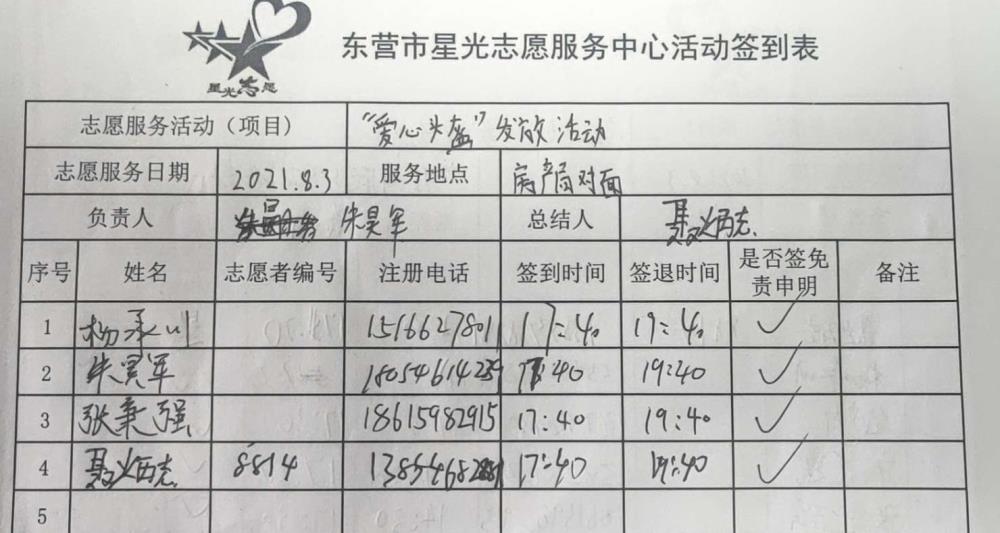 星光志愿
东营市星光志愿服务中心活动签到表
志愿服务活动（项目） “爱心头盔”发放活动
志愿服务日期 2021.8.3 服务地点 房产局对面
负责人 朱昊军 总结人 聂炳志
序号 姓名 志愿者编号 注册电话 签到时间 签退时间 是否签免责申明 备注
1 杨承川 1516627801 17:40 19:40 ✓
2 朱昊军 18054614239 17:40 19:40 ✓
3 张秉强 18615982915 17:40 19:40 ✓
4 聂炳志 8814 17:40 19:40 ✓
5